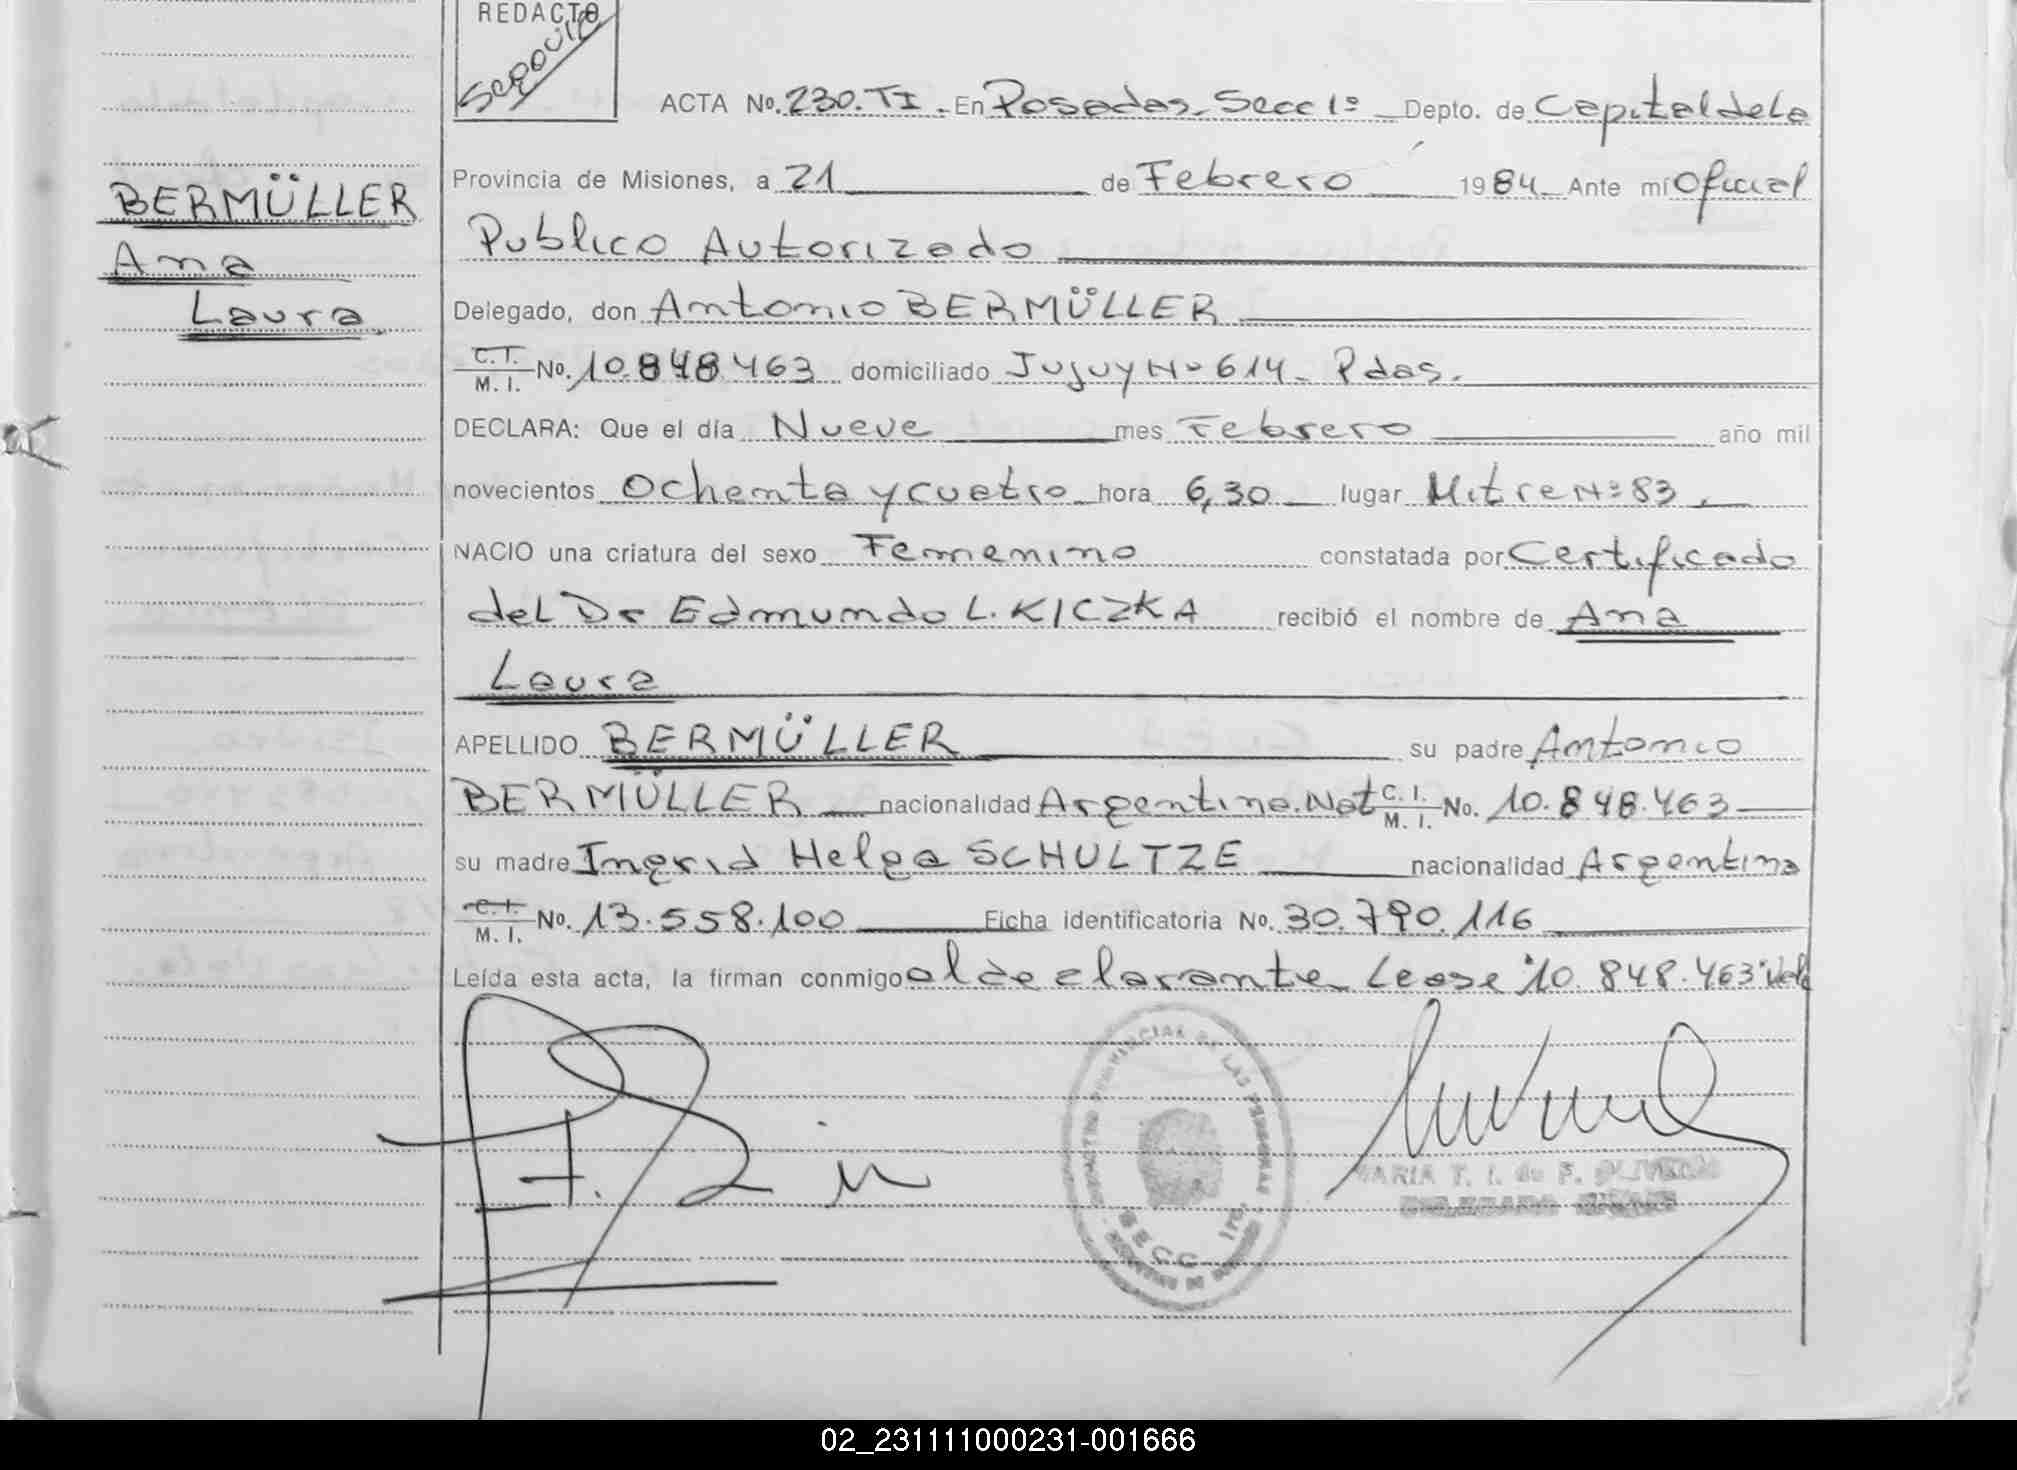 REDACTO
ACTA No. 230. TI. En Posadas, Secc 1º Depto. de Capital de la
Provincia de Misiones, a 21 de Febrero 1984 Ante mí Oficial
BERMÜLLER
Publico Autorizado
Ana
Laura
Delegado, don Antonio BERMÜLLER
C.I. M. I. No. 10.848.463 domiciliado Jujuy Nº 614 - Pdas.
DECLARA: Que el día Nueve mes Febrero año mil
novecientos Ochenta y cuatro hora 6,30 lugar Mitre Nº 83
NACIO una criatura del sexo Femenino constatada por Certificado
del Dr Edmundo L. KICZKA recibió el nombre de Ana
Laura
APELLIDO BERMÜLLER su padre Antonio
BERMÜLLER nacionalidad Argentina. Nat C. I. M. I. No. 10.848.463
su madre Ingrid Helga SCHULTZE nacionalidad Argentina
C. I. M. I. No. 13.558.100 Ficha identificatoria No. 30.790.116
Leída esta acta, la firman conmigo el declarante Lease "10.848.463" Vale
PROVINCIAL DE LAS PERSONAS
SECC 1ro.
MARIA T. I. de F.
02_231111000231-001666